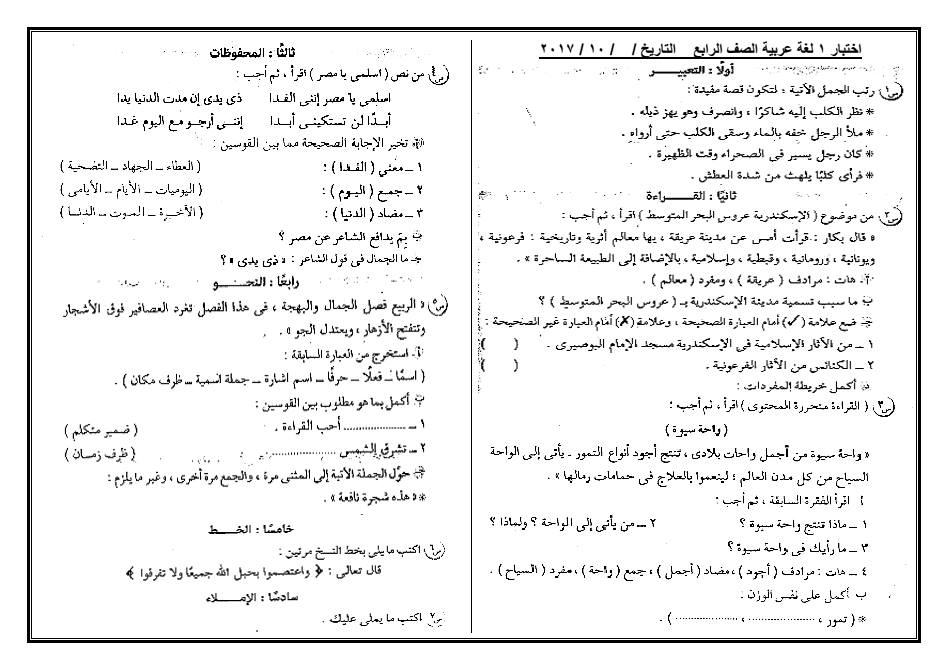 اختبار ١ لغة عربية الصف الرابع التاريخ / / ١٠ / ٢٠١٧
أولًا : التعبيـــر
س١ رتب الجمل الآتية ؛ لتكون قصة مفيدة :
* نظر الكلب إليه شاكرًا ، وانصرف وهو يهز ذيله .
* ملأ الرجل خفه بالماء وسقى الكلب حتى أرواه .
* كان رجل يسير فى الصحراء وقت الظهيرة .
* فرأى كلبًا يلهث من شدة العطش .
ثانيًا : القـــراءة
س٢ من موضوع ( الإسكندرية عروس البحر المتوسط ) اقرأ ، ثم أجب :
« قال بكار : قرأت أمس عن مدينة عريقة ، بها معالم أثرية وتاريخية : فرعونية ،
ويونانية ، ورومانية ، وقبطية ، وإسلامية ، بالإضافة إلى الطبيعة الساحرة » .
أ- هات : مرادف ( عريقة ) ، ومفرد ( معالم ) .
ب ما سبب تسمية مدينة الإسكندرية بـ ( عروس البحر المتوسط ) ؟
جـ ضع علامة (✓) أمام العبارة الصحيحة ، وعلامة (✗) أمام العبارة غير الصحيحة :
١ ــ من الآثار الإسلامية فى الإسكندرية مسجد الإمام البوصيرى . ( )
٢ ــ الكنائس من الآثار الفرعونية . ( )
د أكمل خريطة المفردات :
س٣ ( القراءة متحررة المحتوى ) اقرأ ، ثم أجب :
( واحة سيوة )
« واحة سيوة من أجمل واحات بلادى ، تنتج أجود أنواع التمور . يأتى إلى الواحة
السياح من كل مدن العالم ؛ لينعموا بالعلاج فى حمامات رمالها » .
أ اقرأ الفقرة السابقة ، ثم أجب :
١ ــ ماذا تنتج واحة سيوة ؟ ٢ ــ من يأتى إلى الواحة ؟ ولماذا ؟
٣ ــ ما رأيك فى واحة سيوة ؟
٤ ــ هات : مرادف ( أجود ) ، مضاد ( أجمل ) ، جمع ( واحة ) ، مفرد ( السياح ) .
ب أكمل على نفس الوزن :
* ( تمور ، .................. ، .................. ) .
ثالثًا : المحفوظات
س٤ من نص ( اسلمى يا مصر ) اقرأ ، ثم أجب :
اسلمى يا مصر إننى الفدا ذى يدى إن مدت الدنيا يدا
أبدًا لن تستكينى أبدا إننى أرجو مع اليوم غدا
أ تخير الإجابة الصحيحة مما بين القوسين :
١ ــ معنى ( الفدا ) : ( العطاء ــ الجهاد ــ التضحية )
٢ ــ جمع ( اليوم ) : ( اليوميات ــ الأيام ــ الأيامى )
٣ ــ مضاد ( الدنيا ) : ( الآخرة ــ الموت ــ الدنا )
ب بِمَ يدافع الشاعر عن مصر ؟
جـ ما الجمال فى قول الشاعر : « ذى يدى » ؟
رابعًا : النحـــو
س٥ « الربيع فصل الجمال والبهجة ، فى هذا الفصل تغرد العصافير فوق الأشجار
وتتفتح الأزهار ، ويعتدل الجو » .
أ- استخرج من العبارة السابقة :
( اسمًا ــ فعلًا ــ حرفًا ــ اسم اشارة ــ جملة اسمية ــ ظرف مكان ) .
ب أكمل بما هو مطلوب بين القوسين :
١ ــ .................. أحب القراءة . ( ضمير متكلم )
٢ ــ تشرق الشمس .................. . ( ظرف زمان )
جـ حوِّل الجملة الآتية إلى المثنى مرة ، والجمع مرة أخرى ، وغير ما يلزم :
* « هذه شجرة نافعة » .
خامسًا : الخـــط
س٦ اكتب ما يلى بخط النسخ مرتين :
قال تعالى : ﴿ واعتصموا بحبل الله جميعًا ولا تفرقوا ﴾
سادسًا : الإمـــلاء
س٧ اكتب ما يملى عليك .